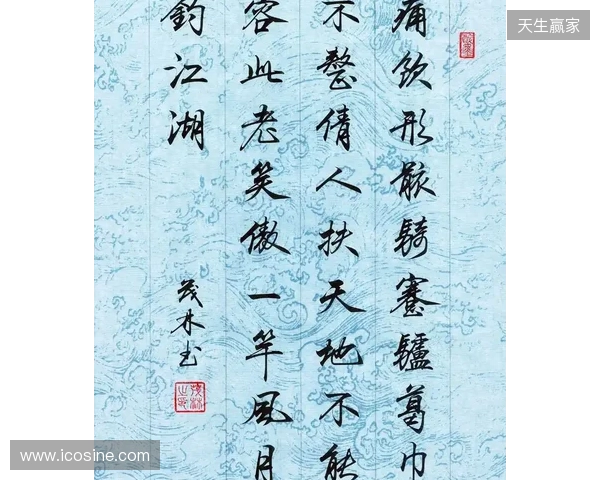 天生赢家
痛飲形骸騎蹇驢葛巾
不整倩人扶天地不能
容此老笑傲一竿風月
釣江湖
茂林书
www.icosine.com